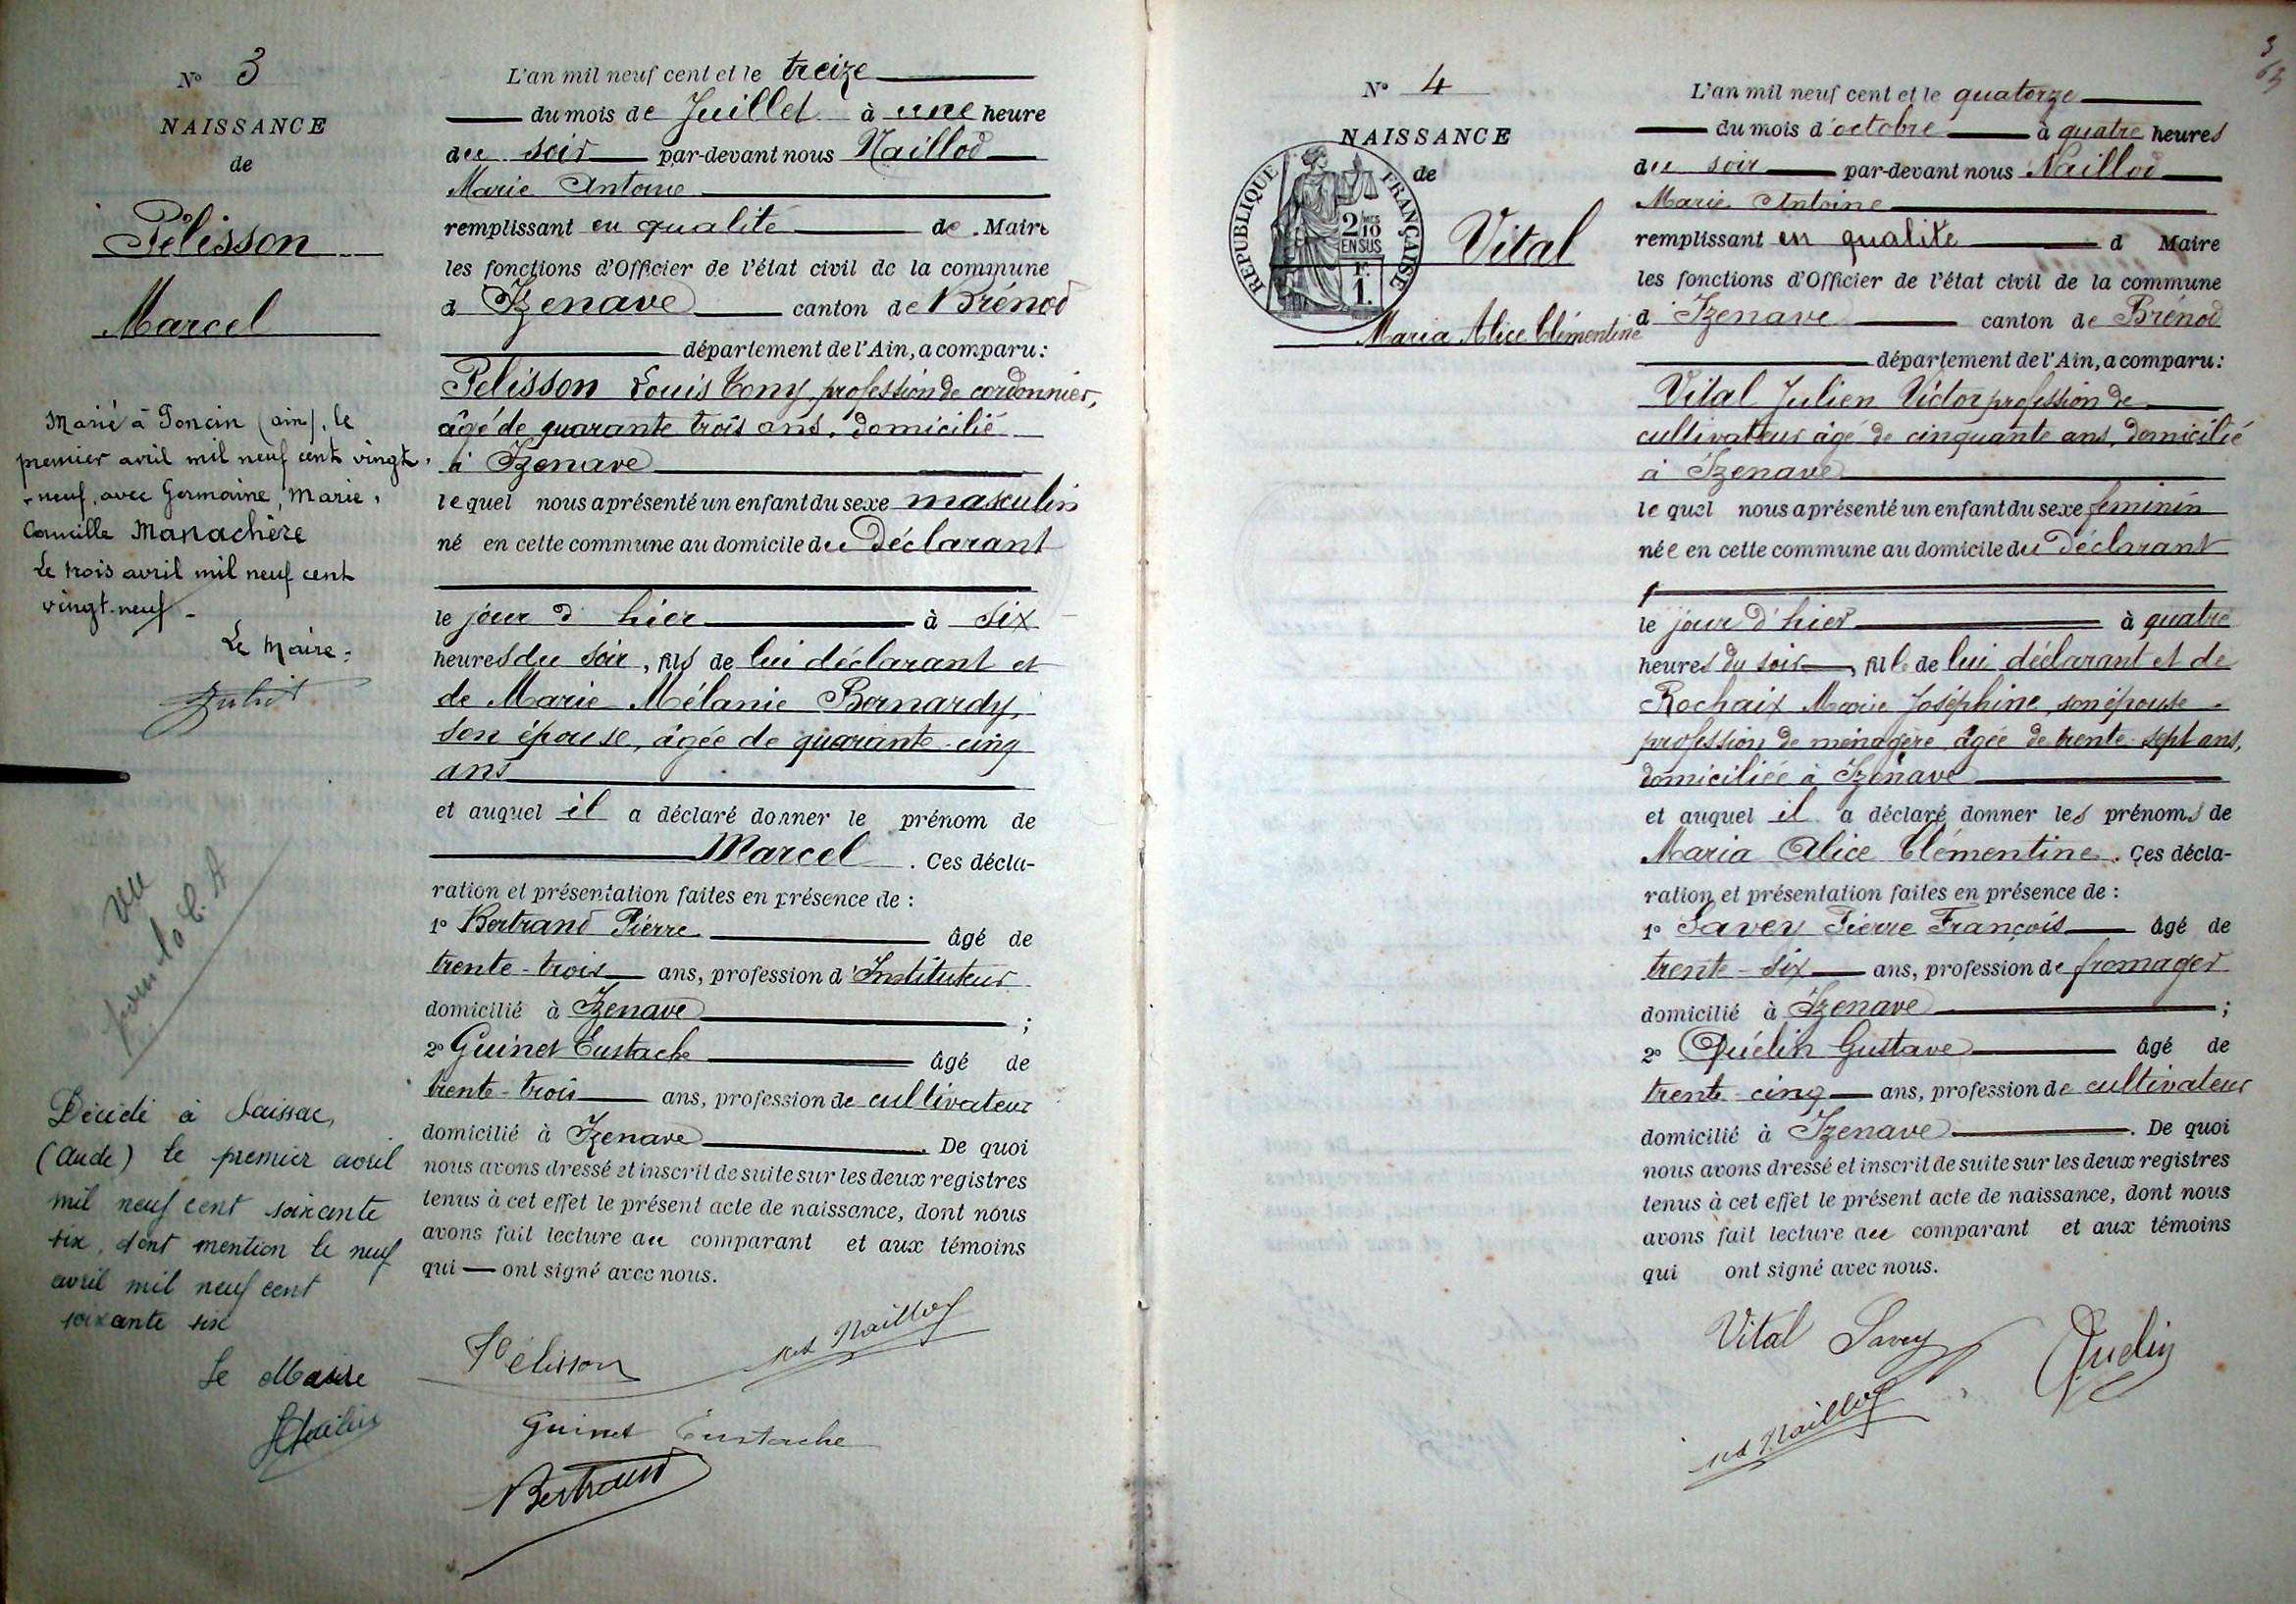 N° 3
NAISSANCE
de
Pélisson
Marcel
Marié à Poncin (ain), le
premier avril mil neuf cent vingt
-neuf, avec Germaine, Marie,
Camille Manachère
Le trois avril mil neuf cent
vingt-neuf -
Le Maire :
vu
pour la C. A
Décédé à Saissac,
(Aude) le premier avril
mil neuf cent soixante
six, dont mention le neuf
avril mil neuf cent
soixante six
Le Maire
L'an mil neuf cent et le treize
du mois de Juillet à une heure
du soir par-devant nous Naillod
Marie Antoine
remplissant en qualité de Maire
les fonctions d'Officier de l'état civil de la commune
d Izenave canton de Brénod
département de l'Ain, a comparu :
Pelisson Louis Tony, profession de cordonnier,
âgé de quarante trois ans, domicilié
à Izenave
lequel nous a présenté un enfant du sexe masculin
né en cette commune au domicile du Déclarant
le jour d'hier à six
heures du soir, fils de lui déclarant et
de Marie Mélanie Bernardy,
son épouse, âgée de quarante-cinq
ans
et auquel il a déclaré donner le prénom de
Marcel. Ces décla-
ration et présentation faites en présence de :
1° Bertrand Pierre âgé de
trente-trois ans, profession d'Instituteur
domicilié à Izenave ;
2° Guinet Eustache âgé de
trente-trois ans, profession de cultivateur
domicilié à Izenave. De quoi
nous avons dressé et inscrit de suite sur les deux registres
tenus à cet effet le présent acte de naissance, dont nous
avons fait lecture au comparant et aux témoins
qui — ont signé avec nous.
Pélisson
Naillod
Guinet Eustache
Bertrand
3
N° 4
NAISSANCE
de
REPUBLIQUE FRANÇAISE
2/10 MES
EN SUS
1 F.
Vital
Maria Alice Clémentine
L'an mil neuf cent et le quatorze
du mois d'octobre à quatre heures
du soir par-devant nous Naillod
Marie Antoine
remplissant en qualité d Maire
les fonctions d'Officier de l'état civil de la commune
d'Izenave canton de Brénod
département de l'Ain, a comparu :
Vital Julien Victor profession de
cultivateur âgé de cinquante ans, domicilié
à Izenave
lequel nous a présenté un enfant du sexe feminin
née en cette commune au domicile du Déclarant
le jour d'hier à quatre
heures du soir, fille de lui déclarant et de
Rochaix Marie Joséphine, son épouse
profession de ménagère âgée de trente-sept ans,
domiciliée à Izenave
et auquel il a déclaré donner les prénoms de
Maria Alice Clémentine. Ces décla-
ration et présentation faites en présence de :
1° Savey Pierre François âgé de
trente-six ans, profession de fromager
domicilié à Izenave ;
2° Quélin Gustave âgé de
trente-cinq ans, profession de cultivateur
domicilié à Izenave. De quoi
nous avons dressé et inscrit de suite sur les deux registres
tenus à cet effet le présent acte de naissance, dont nous
avons fait lecture au comparant et aux témoins
qui ont signé avec nous.
Vital Savey
Naillod